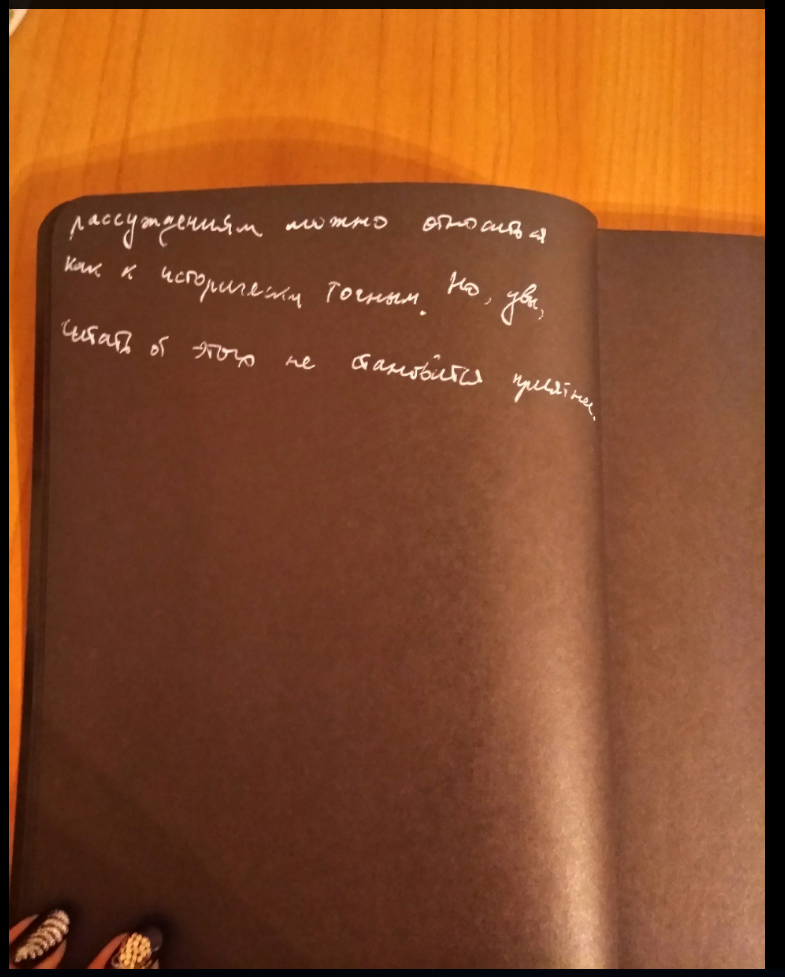 рассуждениям можно относиться
как к исторически точным. Но, увы,
читать от этого не становится приятнее.